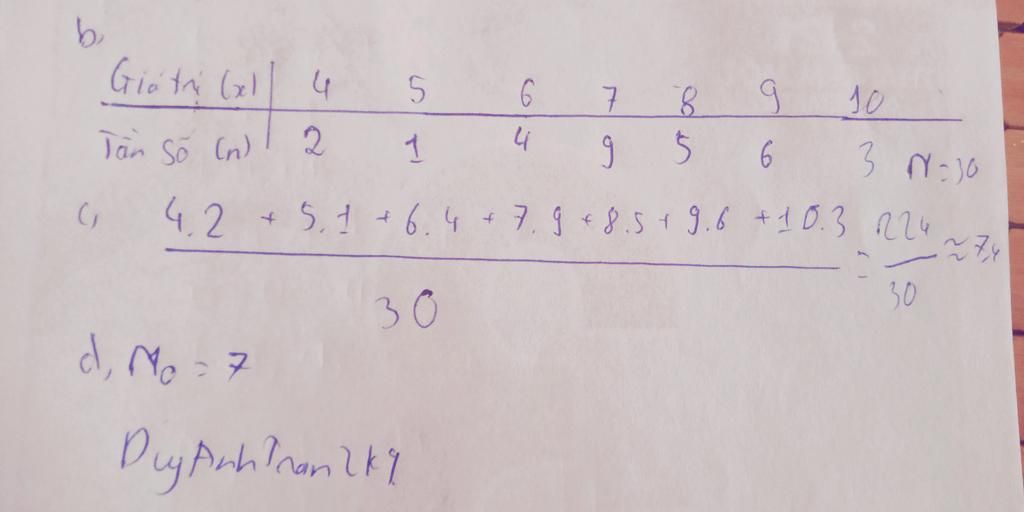 b,
Giá trị (x) 4 5 6 7 8 9 10
Tần số (n) 2 1 4 9 5 6 3 N=30
c, 4.2 + 5.1 + 6.4 + 7.9 + 8.5 + 9.6 + 10.3 = 224 ≈ 7,4
30 30
d, M0 = 7
DuyAnhTran2k9